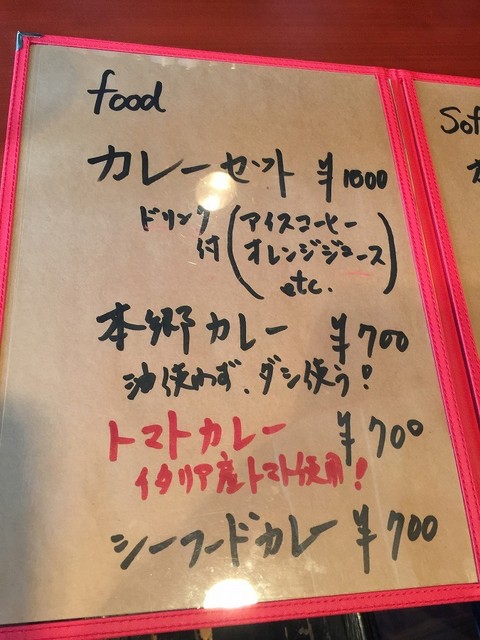 food
カレーセット ¥1000
ドリンク付(アイスコーヒー
オレンジジュース
etc.)
本郷カレー ¥700
油使わず、ダシ使う!
トマトカレー ¥700
イタリア産トマト使用!
シーフードカレー ¥700
Sof